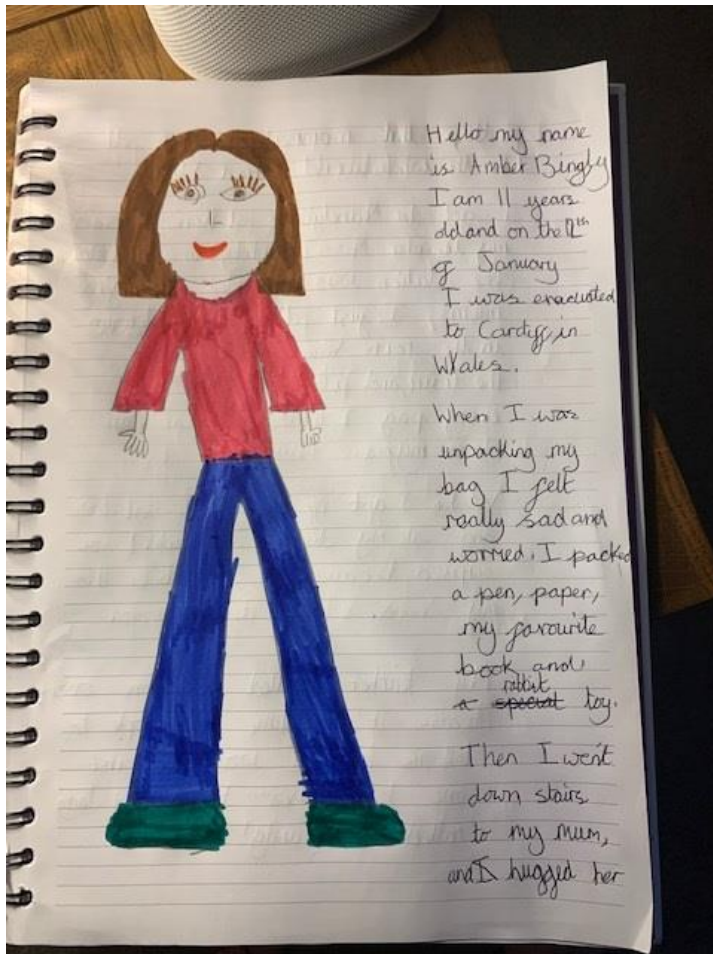 Hello my name
is Amber Bingby
I am 11 years
old and on the 12th
of January
I was evacuated
to Cardiff in
Wales.
When I was
unpacking my
bag I felt
really sad and
worried. I packed
a pen, paper,
my favourite
book and
rabbit
a special toy.
Then I went
down stairs
to my mum,
and I hugged her